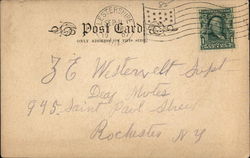 Post Card
ONLY ADDRESS ON THIS SIDE
Z E Westervelt Supt
Deaf Mutes
945 Saint Paul Street
Rochester N Y